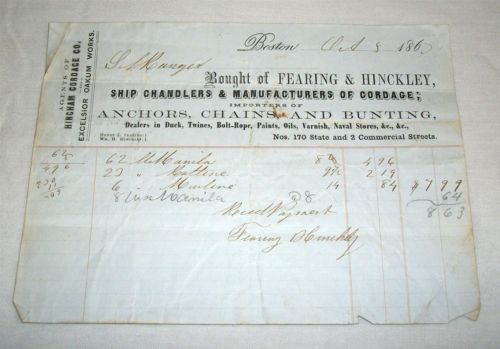 Boston Oct 8 186
S. Munger
Bought of FEARING & HINCKLEY,
SHIP CHANDLERS & MANUFACTURERS OF CORDAGE;
IMPORTERS OF
ANCHORS, CHAINS, AND BUNTING,
Dealers in Duck, Twines, Bolt-Rope, Paints, Oils, Varnish, Naval Stores, &c., &c.,
Nos. 170 State and 2 Commercial Streets.
AGENTS OF
HINGHAM CORDAGE CO.
EXCELSIOR OAKUM WORKS.
62 Manila 8 4 96
23 " Ratline 2 19
6 " Marline 14 84 $7 99
8 Manila 8 64
8 63
Recd Payment
Fearing & Hinckley